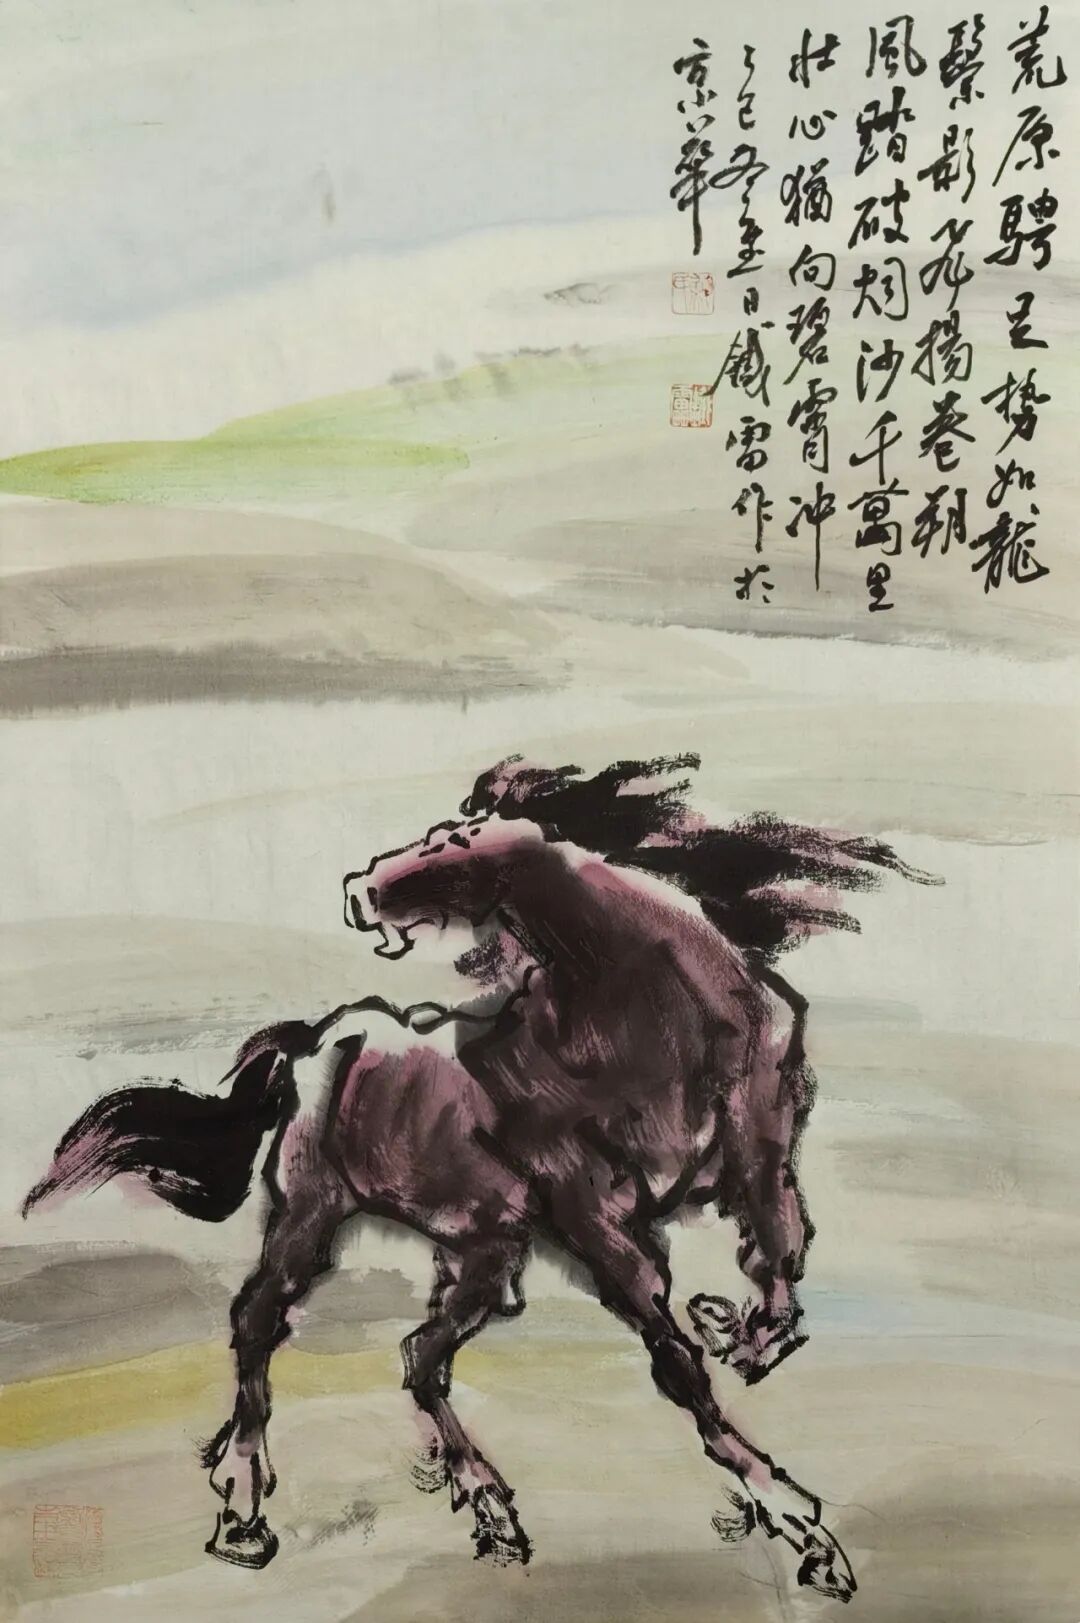 荒原騁足势如龍
鬃影飛揚卷朔
風踏破烟沙千萬里
壮心猶向碧霄冲
乙巳冬至日鐵雷作於
京華